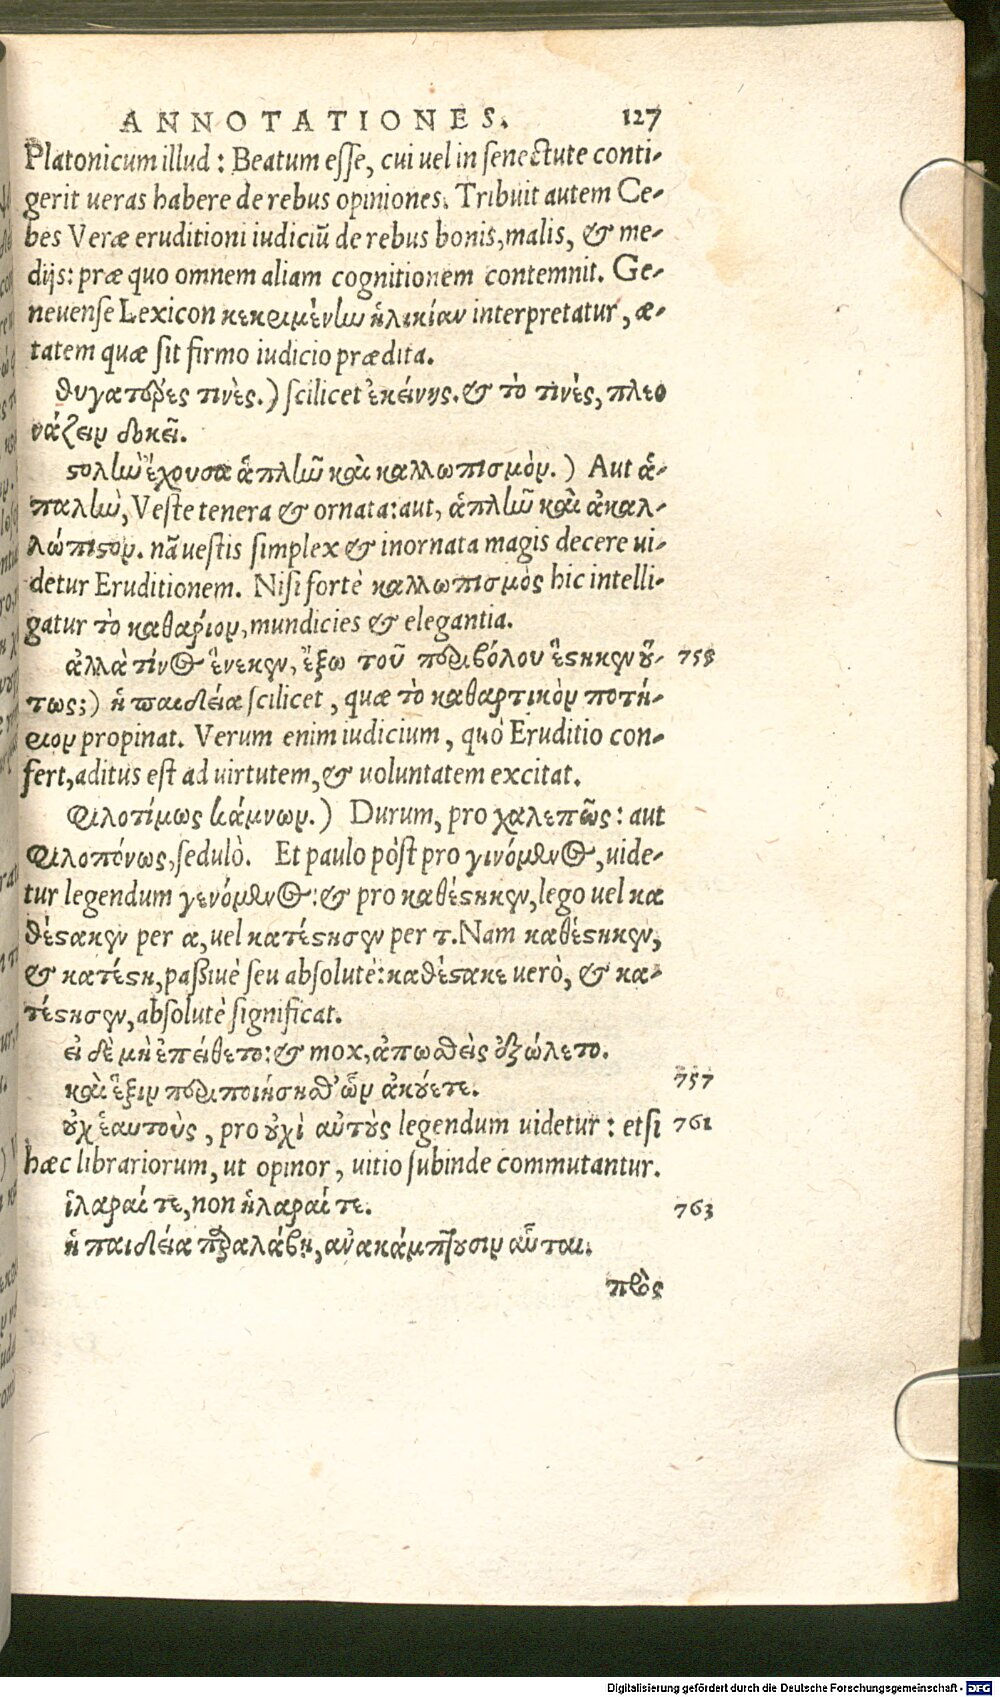 ANNOTATIONES. 127
Platonicum illud: Beatum esse, cui uel in senectute conti-
gerit ueras habere de rebus opiniones. Tribuit autem Ce-
bes Veræ eruditioni iudiciũ de rebus bonis, malis, & me-
dijs: præ quo omnem aliam cognitionem contemnit. Ge-
neuense Lexicon κεκριμένἰω ἡλικίαν interpretatur, æ-
tatem quæ sit firmo iudicio prædita.
θυγατέρες τινὲς.) scilicet ἐκείνης. & τὸ τινὲς, πλεο
νάζειν δοκεῖ.
στολἰὼ ἔχουσα ἁπλἰῶ καὶ καλλωπισμὸν.) Aut ἁ-
παλἰὼ, Veste tenera & ornata: aut, ἁπλἰῶ καὶ ἀκαλ-
λώπιστον. nã uestis simplex & inornata magis decere ui-
detur Eruditionem. Nisi fortè καλλωπισμὸς hic intelli-
gatur τὸ καθάριον, mundicies & elegantia.
ἀλλὰ τίνος ἕνεκεν, ἔξω τοῦ περιβόλου ἕστηκεν οὕ- 758
τως;) ἡ παιδεία scilicet, quæ τὸ καθαρτικὸν ποτή-
ριον propinat. Verum enim iudicium, quò Eruditio con-
fert, aditus est ad uirtutem, & uoluntatem excitat.
Φιλοτίμως κάμνων.) Durum, pro χαλεπῶς: aut
Φιλοπόνως, sedulò. Et paulo pòst pro γινόμενος, uide-
tur legendum γενόμενος: & pro καθέστηκεν, lego uel κα
θέστακεν per α, uel κατέστησεν per τ. Nam καθέστηκεν,
& κατέστη, passiuè seu absolutè: καθέστακε uerò, & κα-
τέστησεν, absolutè significat.
εἰ δὲ μὴ ἐπείθετο: & mox, ἀπωσθεὶς ἐξώλετο.
καὶ ἕξιν περιποιήσησθ' ὧν ἀκούετε. 757
οὐχ ἑαυτοὺς, pro οὐχὶ αὐτοὺς legendum uidetur: etsi 761
hæc librariorum, ut opinor, uitio subinde commutantur.
ἱλαραί τε, non ἡλαραί τε. 763
ἡ παιδεία παραλάβῃ, ἀνακάμπτουσιν αὗται.
πρὸς
Digitalisierung gefördert durch die Deutsche Forschungsgemeinschaft - DFG